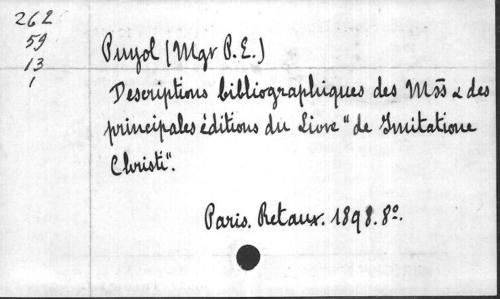 262
59
13
1
Puyol (Mgr P. E.)
Descriptions bibliographiques des Mss & des
principales éditions du Livre "de Imitatione
Christi".
Paris. Retaux. 1898. 8º.